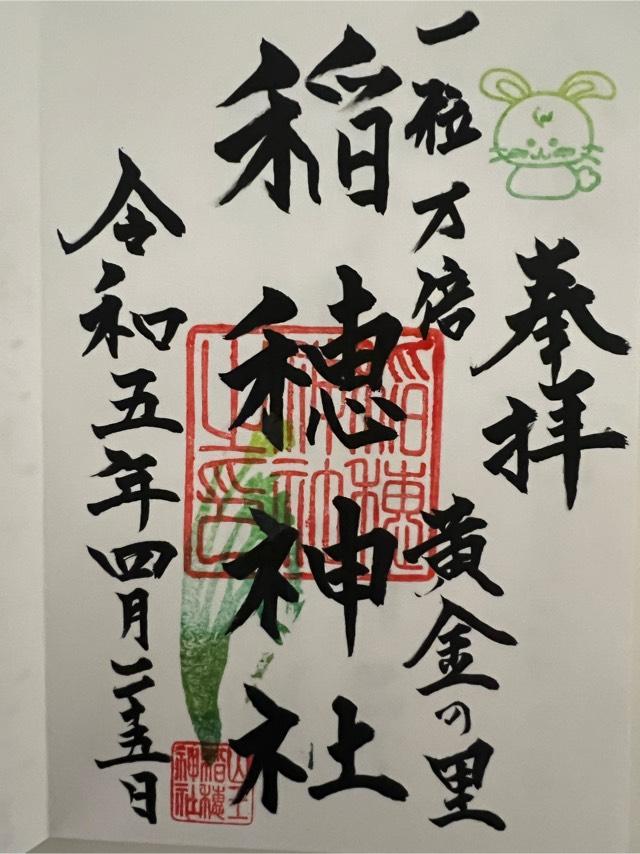 奉拝
一粒万倍
黄金の里
稲穂神社
稲穂神社之印
令和五年四月二十五日
山王稲穂神社